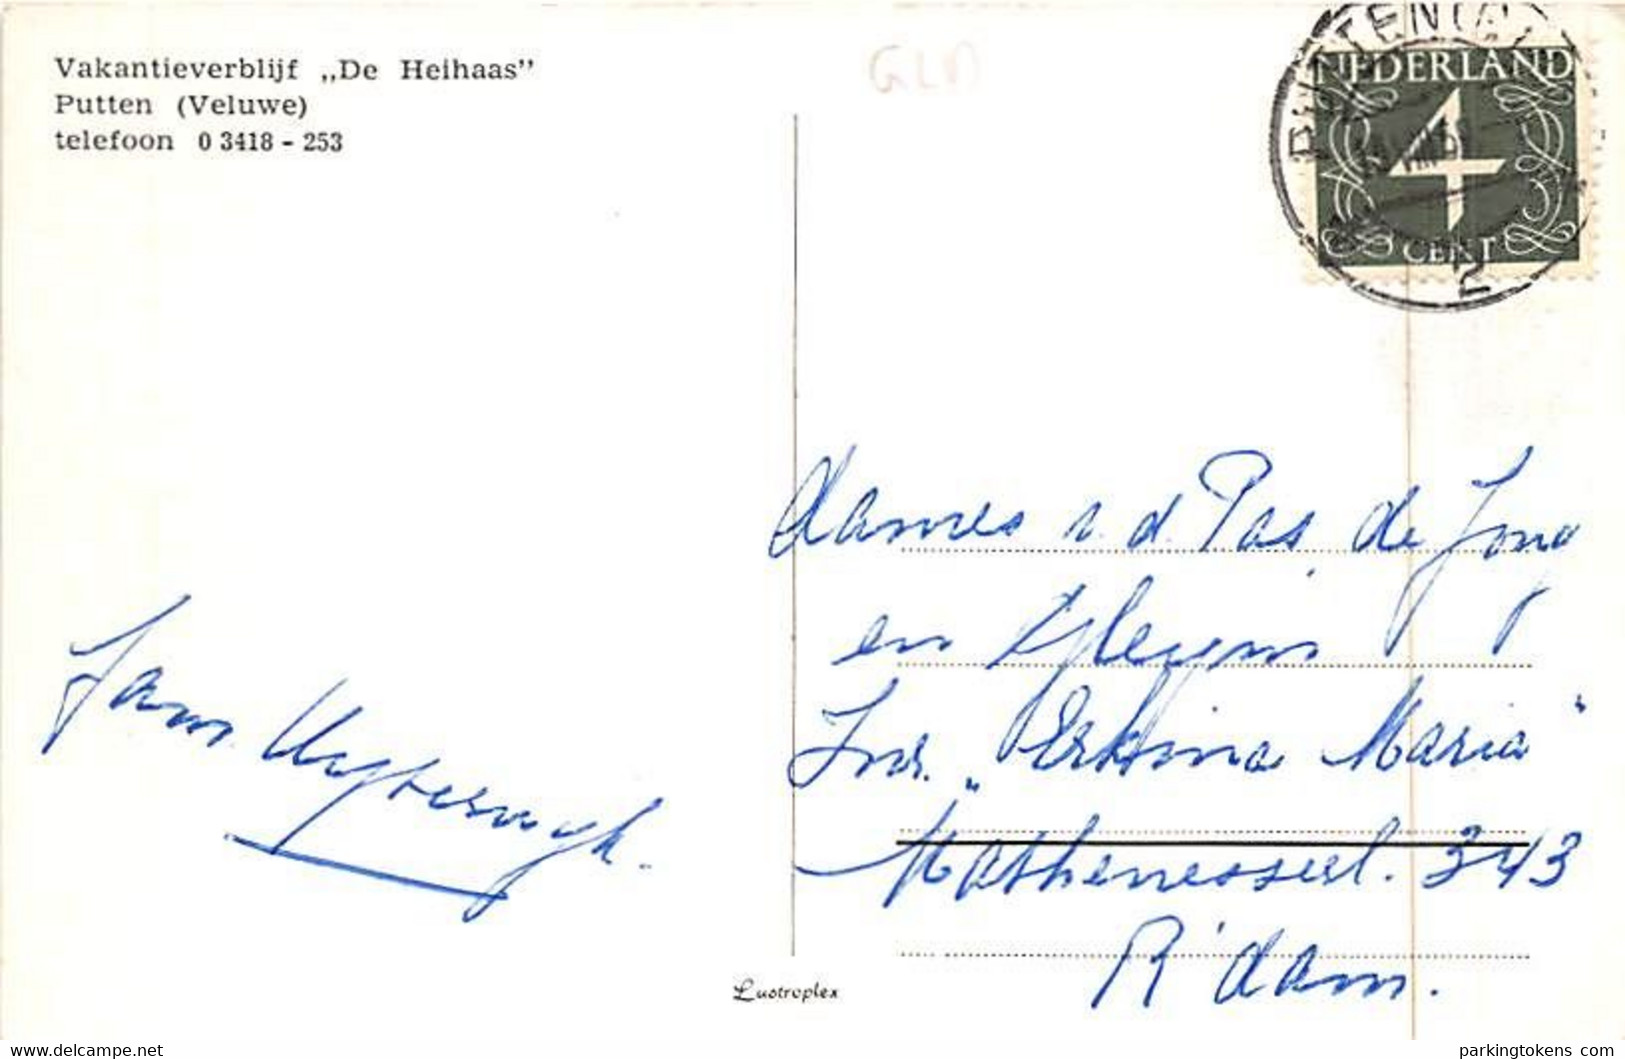 Vakantieverblijf „De Heihaas”
Putten (Veluwe)
telefoon 0 3418 - 253
GLD
PUTTEN(GLD)
NEDERLAND
4
CENT
2
Dames v.d. Pas, de Jong
en
Inr. „Erthina Maria"
Mathenesserl. 343
R'dam.
Lustroplex
delcampe.net
parkingtokens_com